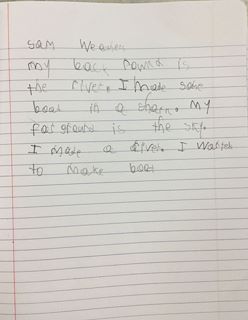 sam Weaver
my back round is
the river. I made some
boat in a sharn. my
forground is the sky.
I made a river. I wanted
to make boat